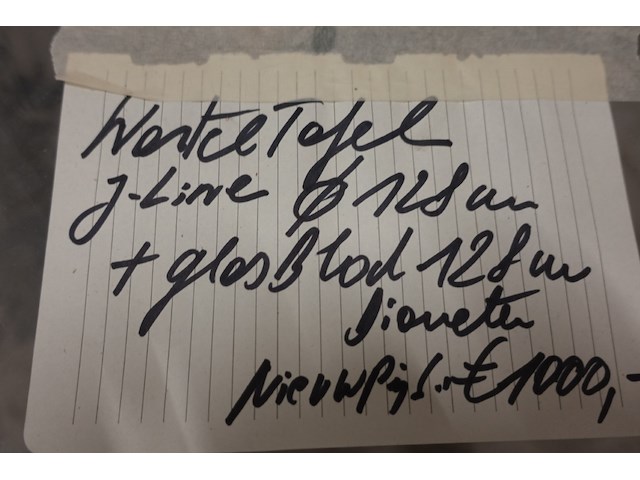 WortelTafel
J-Line Ø 128 cm
+ glasBlad 128 cm
Diameter
Nieuw €1000,-